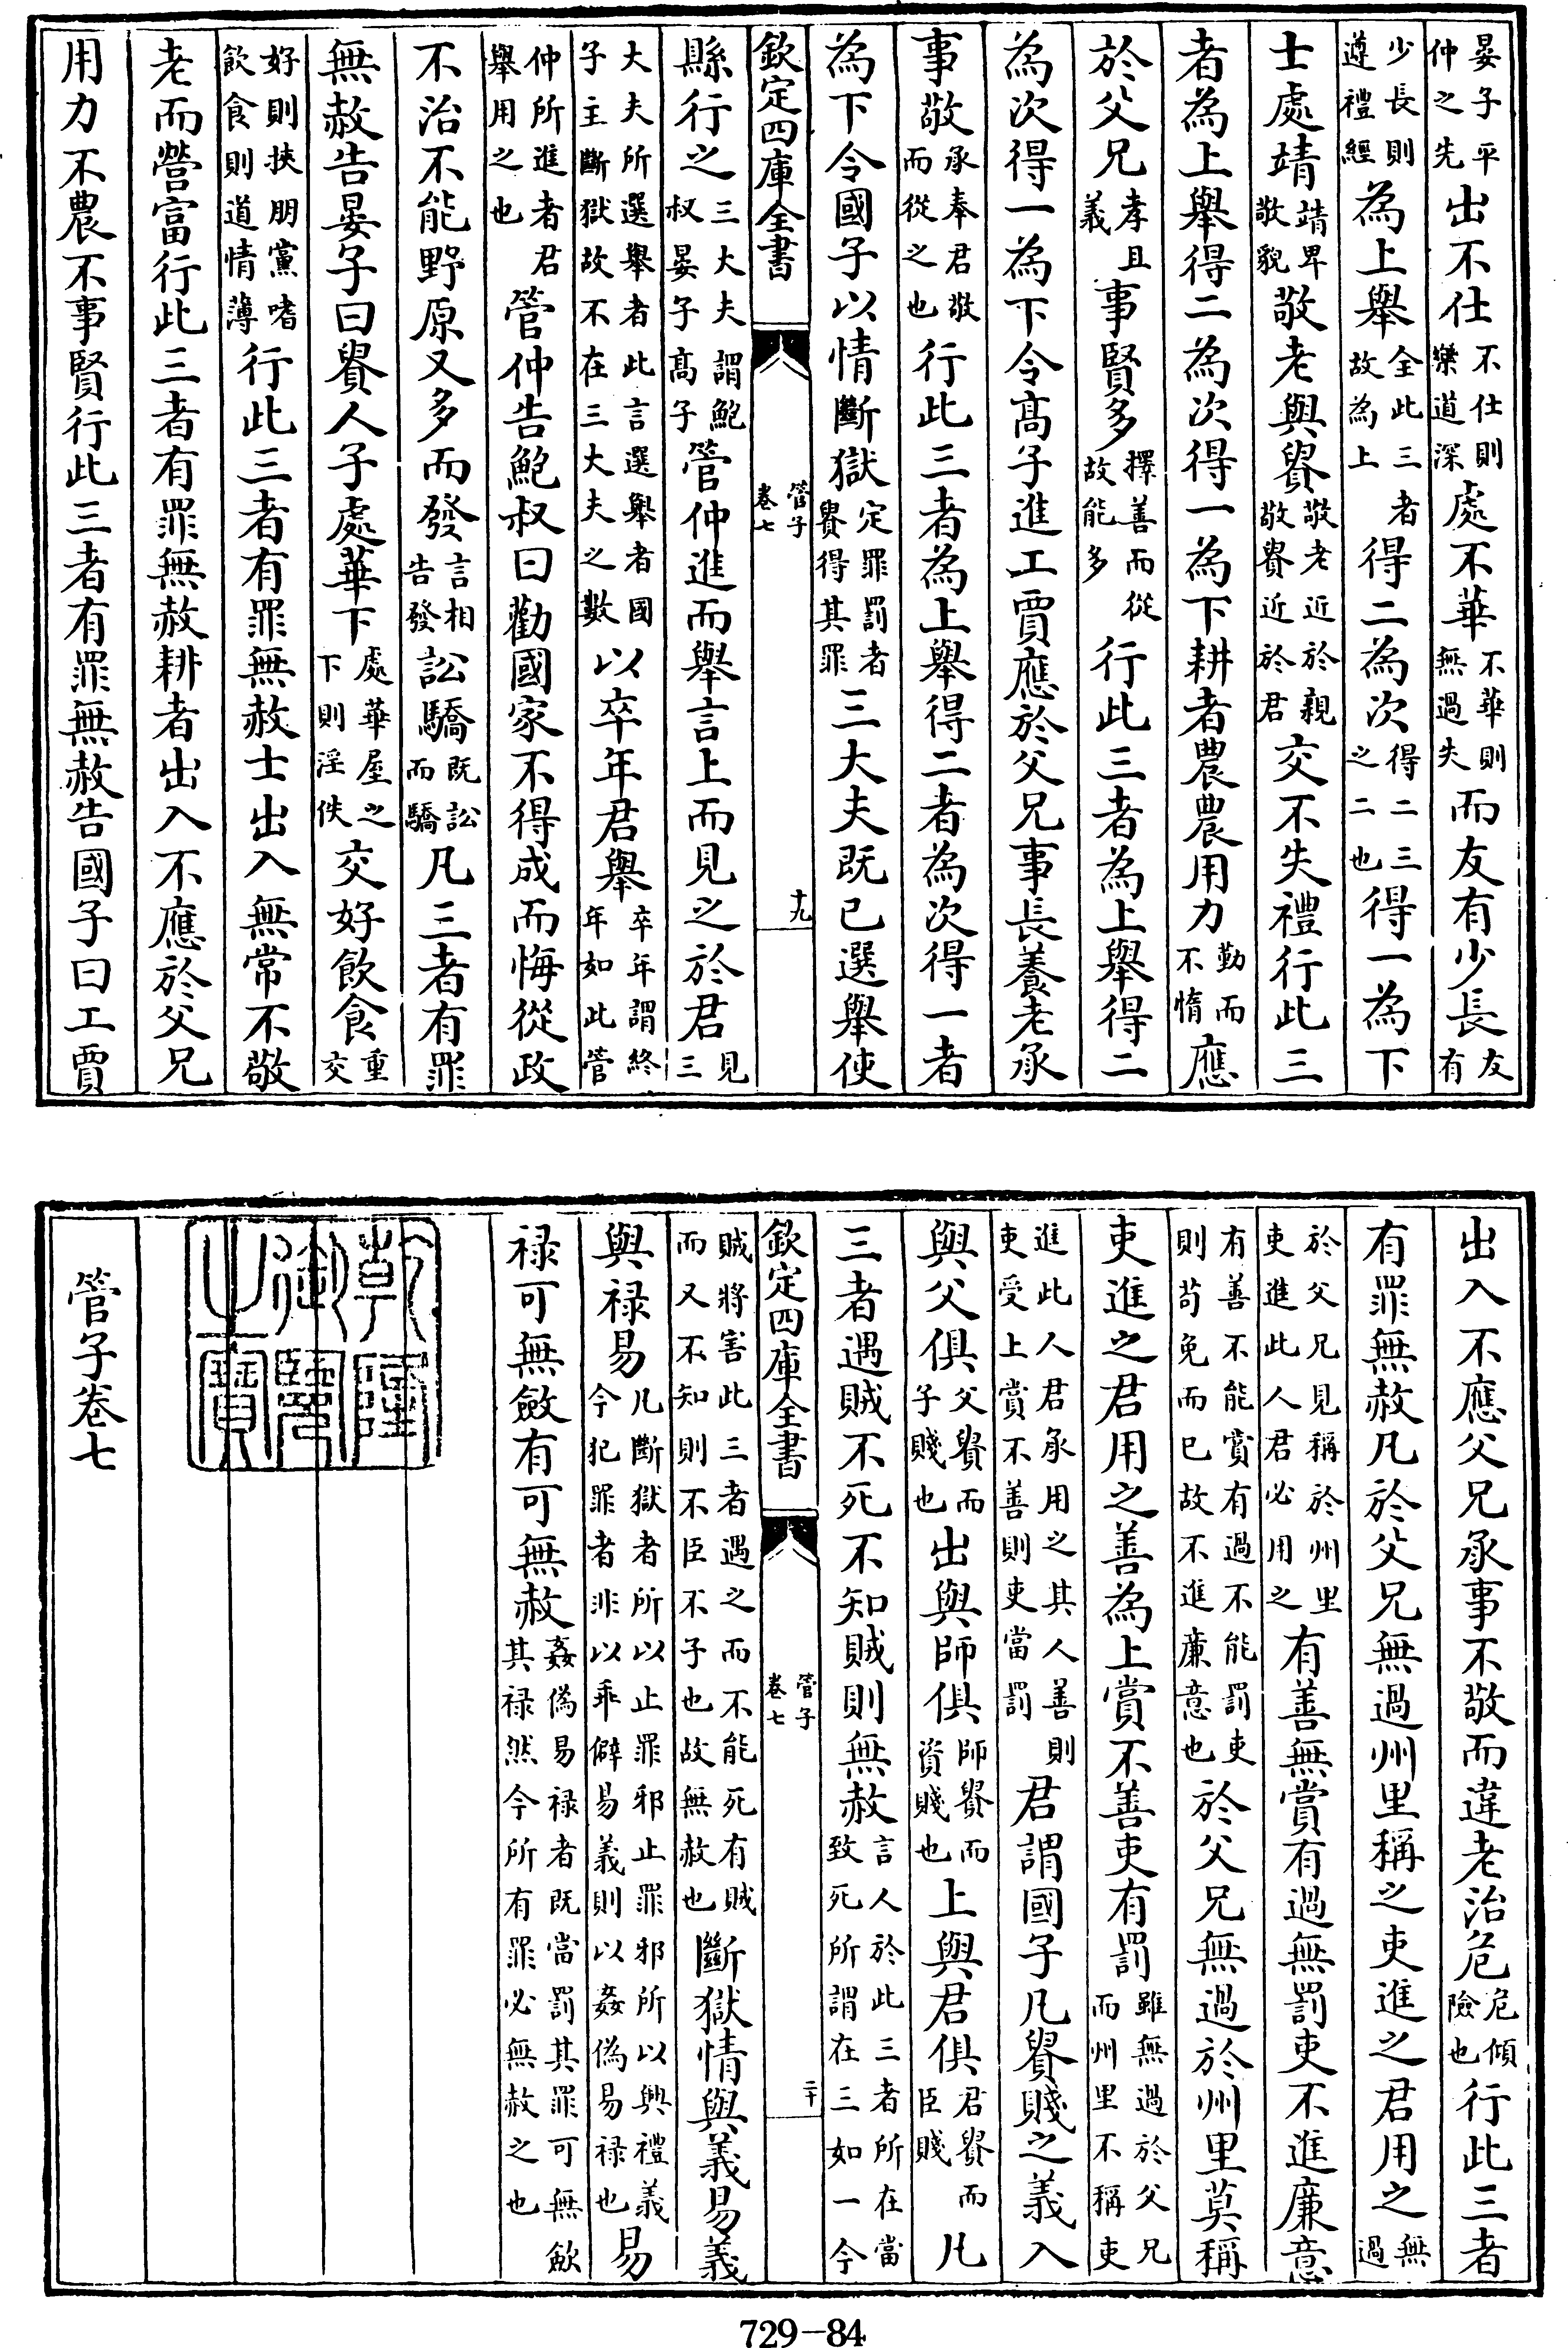 晏子平仲之先出不仕不仕則樂道深處不華不華則無過失而友有少長友有
少長則遵禮經為上舉全此三者故為上得二為次得二三之二也得一為下
士處靖靖卑敬貌敬老與貴敬老近於親敬貴近於君交不失禮行此三
者為上舉得二為次得一為下耕者農農用力勤而不惰應
於父兄孝且義事賢多擇善而從故能多行此三者為上舉得二
為次得一為下令高子進工賈應於父兄事長養老承
事敬承奉君敬而從之也行此三者為上舉得二者為次得一者
為下令國子以情斷獄定罪罰者貴得其罪三大夫既已選舉使
欽定四庫全書
管子
卷七
十九
縣行之三大夫謂鮑叔晏子高子管仲進而舉言上而見之於君見三
大夫所選舉者此言選舉者國子主斷獄故不在三大夫之數以卒年君舉卒年謂終年如此管
仲所進者君舉用之也管仲告鮑叔曰勸國家不得成而悔從政
不治不能野原又多而發言相告發訟驕既訟而驕凡三者有罪
無赦告晏子曰貴人子處華下處華屋之下則淫佚交好飲食重交
好則挾朋黨嗜飲食則道情薄行此三者有罪無赦士出入無常不敬
老而營富行此三者有罪無赦耕者出入不應於父兄
用力不農不事賢行此三者有罪無赦告國子曰工賈
出入不應父兄承事不敬而違老治危危傾險也行此三者
有罪無赦凡於父兄無過州里稱之吏進之君用之無過
於父兄見稱於州里吏進此人君必用之有善無賞有過無罰吏不進廉意
有善不能賞有過不能罰吏則苟免而已故不進廉意也於父兄無過於州里莫稱
吏進之君用之善為上賞不善吏有罰雖無過於父兄而州里不稱吏
進此人君承用之其人善則吏受上賞不善則吏當罰君謂國子凡貴賤之義入
與父俱父貴而子賤也出與師俱師貴而資賤也上與君俱君貴而臣賤凡
三者遇賊不死不知賊則無赦言人於此三者所在當致死所謂在三如一今
欽定四庫全書
管子
卷七
二十
賊將害此三者遇之而不能死有賊而又不知則不臣不子也故無赦也斷獄情與義易義
與祿易凡斷獄者所以止罪邪止罪邪所以興禮義今犯罪者非以乖僻易義則以姦偽易祿也易
祿可無斂有可無赦姦偽易祿者既當罰其罪可無斂其祿然今所有罪必無赦之也
乾隆御覽之寶
管子卷七
729—84